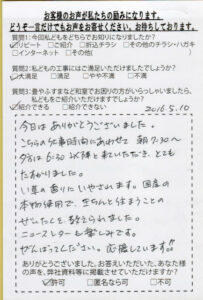 お客様のお声が私たちの励みになります。
どうぞ一言だけでもお声をお寄せください。お待ちしております。
質問1:今回私どもをどちらでお知りになりましたか?
☑リピート □ご紹介 □折込チラシ □その他のチラシ・ハガキ
□インターネット □その他(
質問2:私どもの工事にはご満足いただけましたでしょうか?
☑大満足 □満足 □やや不満 □不満
質問3:畳やふすまなど和室でお困りの方がいらっしゃいましたら、
私どもをご紹介いただけますでしょうか?
☑紹介できる □紹介できない
2016.5.10
今日はありがとうございました。
こちらの仕事時間にあわせ 朝7:30〜
夕方は6:30以降と来ていただき、とても
たすかりました。
い草の香りにいやされます。国産の
本物使用で、きちんと住まうことの
ぜいたくを教えられました。
ニュースレターも楽しみです。
がんばってください。応援しています!!
ありがとうございました。お答えいただいた、あなた様
の声を、弊社資料等に掲載させていただけますか?
☑許可 □匿名なら可 □不可